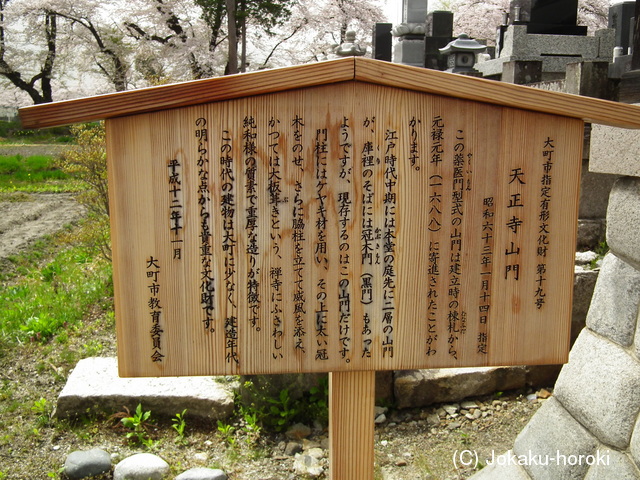 大町市指定有形文化財 第十九号
天正寺山門
昭和六十三年一月十四日 指定
この薬医門型式の山門は建立時の棟札から、
元禄元年(一六八八)に寄進されたことがわ
かります。
江戸時代中期には本堂の庭先に二層の山門
が、庫裡のそばには冠木門(黒門)もあった
ようですが、現存するのはこの山門だけです。
門柱にはケヤキ材を用い、その上に太い冠
木をのせ、さらに脇柱を立てて威風を添え、
かつては大板葺きという、禅寺にふさわしい
純和様の質素で重厚な造りが特徴です。
この時代の建物は大町に少なく、建造年代
の明らかな点からも貴重な文化財です。
平成十二年十一月
大町市教育委員会
(C) Jokaku-horoki